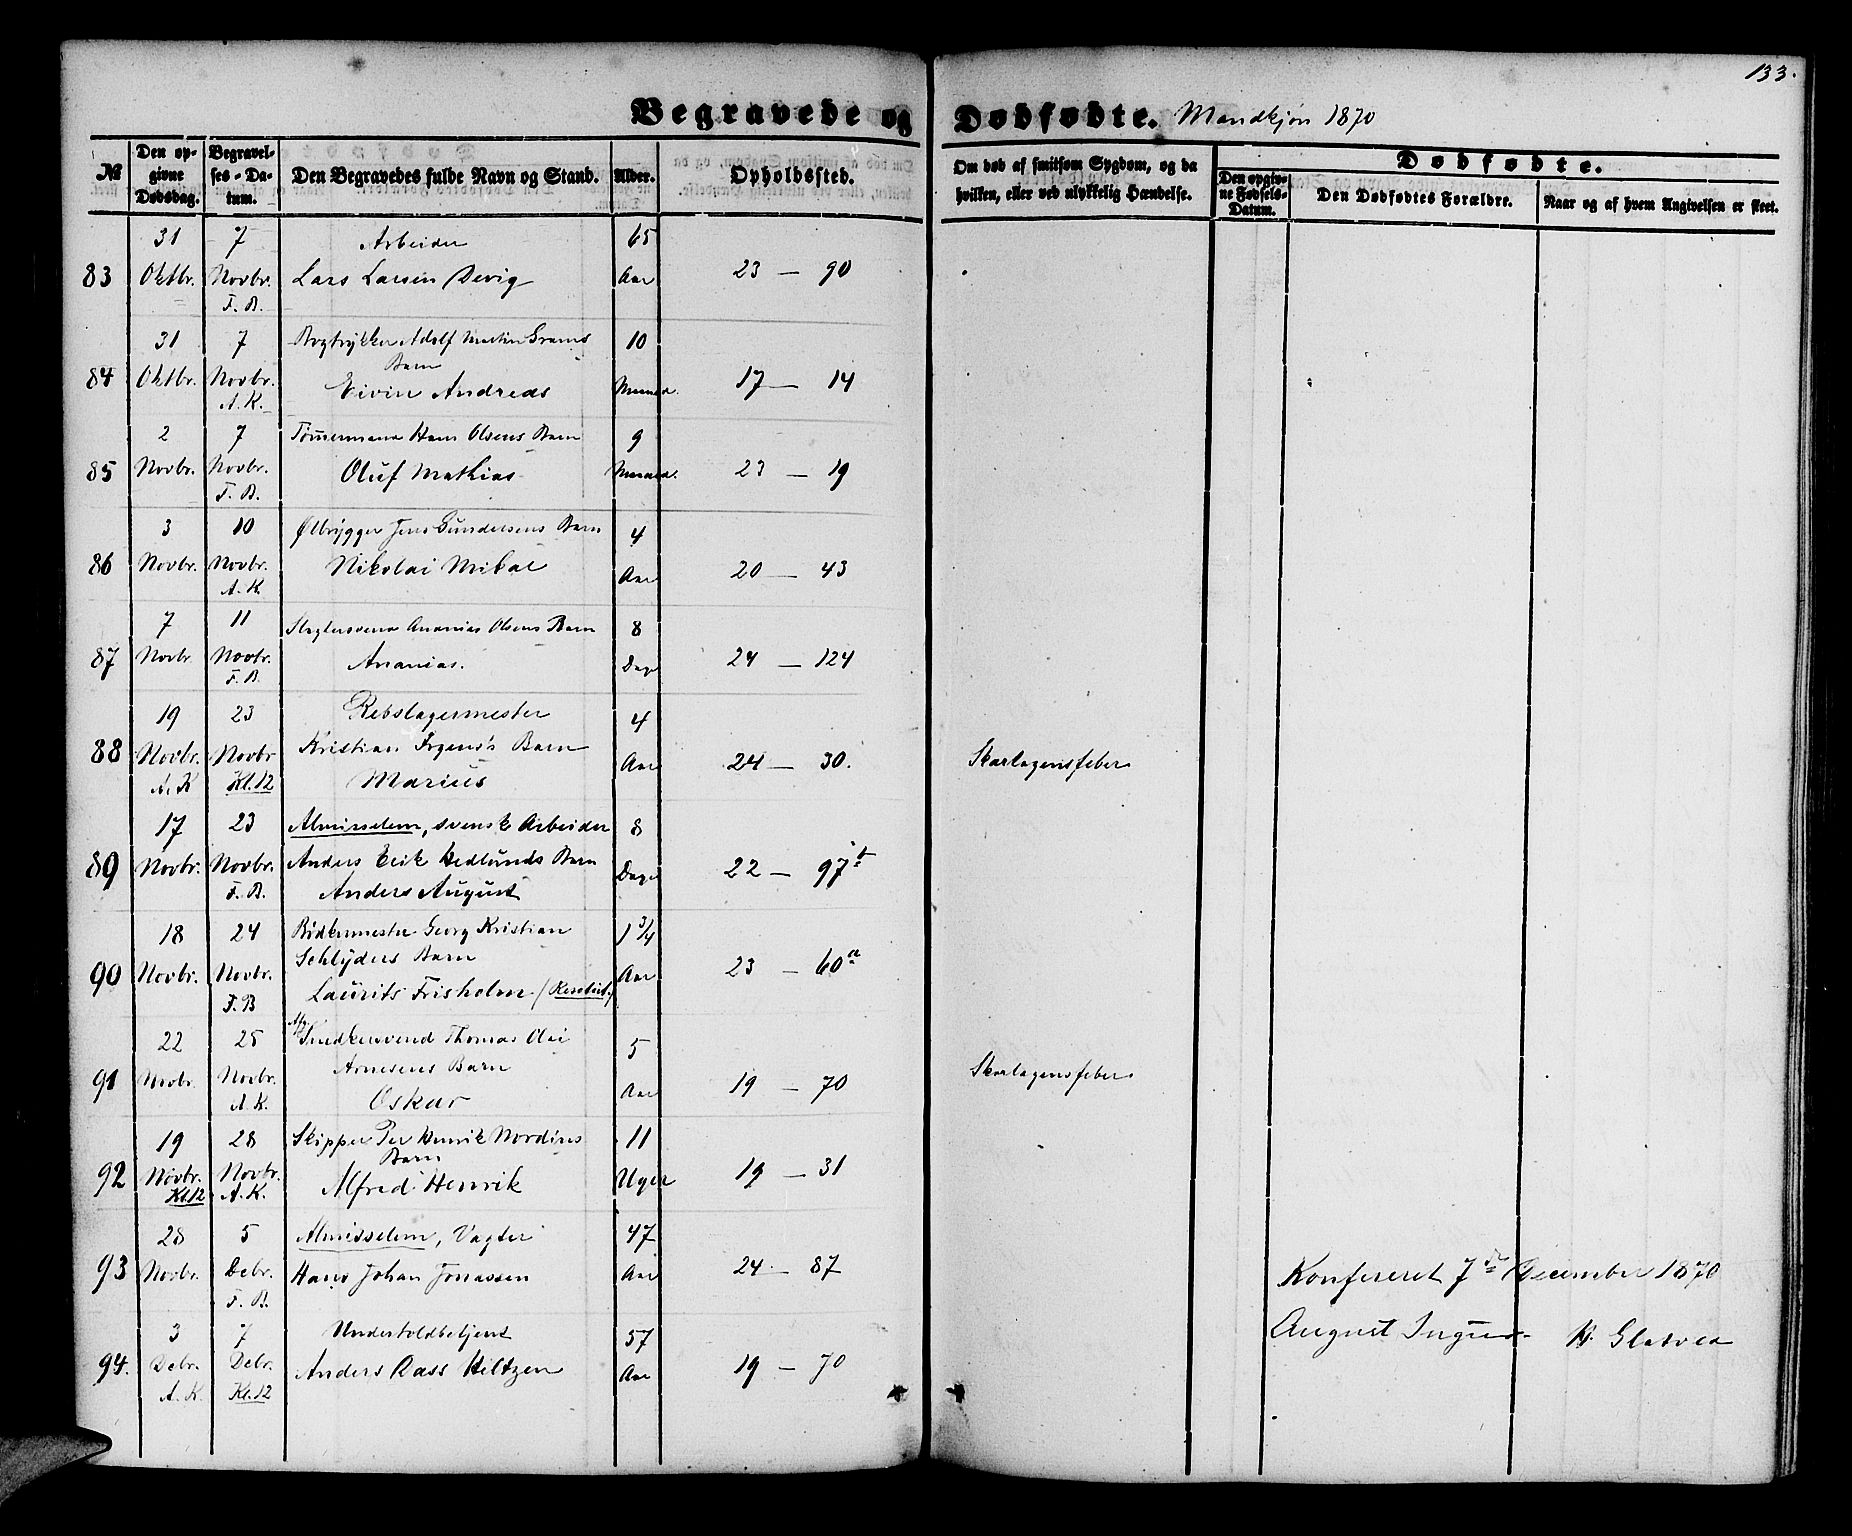 133.
Begravede og Dødfødte. Mandkjøn 1870
№
Den op-
givne
Dødsdag.
Begravel-
ses-Da-
tum.
Den Begravedes fulde Navn og Stand.
Alder.
Opholdssted.
Om død af smitsom Sygdom, og da
hvilken, eller ved ulykkelig Hændelse.
Dødfødte.
Den opgiv-
ne Fødsels-
Datum.
Den Dødfødtes Forældre.
Naar og af hvem Angivelsen er skeet.
31 7 Arbeider 65
83 Oktbr. Novbr. Lars Larsen Devig Aar 23 — 90
F. B.
31 7 Bogtrykker Adolf Martin Grams 10
Barn
84 Oktbr. Novbr. Eivin Andreas Maaned. 17 — 14
A. K.
2 7 Tømmermand Hans Olsens Barn 9
85 Novbr. Novbr. Oluf Mathias Maaned. 23 — 19
F. B.
3 10 Ølbrygger Jens Gundersens Barn 4
86 Novbr. Novbr. Nikolai Mikal Aar 20 — 43
A. K.
7 11 Slagtersvend Ananias Olsens Barn 8
87 Novbr Novbr. Ananias. Dage 24 — 124
F. B.
19 23 Rebslagermester 4
88 Novbr. Novbr Kristian Irgens's Barn Aar 24 — 30. Skarlagensfeber
A. K Kl. 12 Marius
17 23 Almisselem, svensk Arbeider 8
89 Novbr. Novbr. Anders Erik Hedlunds Barn Dage 22 — 97b
F. B. Anders August
18 24 Bødkermester Georg Kristian 1 3/4
Schlyders Barn
90 Novbr. Novbr. Laurits Frisholm Aar 23 — 60a
F. B
22 25 Snedkersvend Thomas Olai 5
Arnesens Barn
91 Novbr. Novbr. Oskar Aar 19 — 70 Skarlagensfeber
A. K.
19 28 Skipper Per Henrik Nordins 11
Barn
92 Novbr. Novbr. Alfred Henrik Uger 19 — 31
Kl. 12 A. K.
28 5 Almisselem, Vægter 47
93 Novbr. Debr. Hans Johan Jonassen Aar 24 — 87
F. B.
Konfereret 7de December 1870
3 7 Undertoldbetjent 57
August H. Gletved
94. Debr. Debr. Anders Dass Hiltzen Aar 19 — 70
A. K. Kl. 12